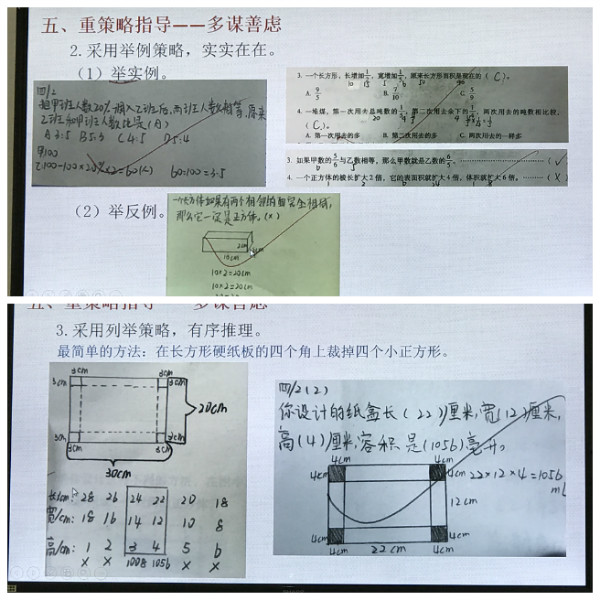 五、重策略指导——多谋善虑
2.采用举例策略，实实在在。
（1）举实例。
四/2
把甲班人数20%调入乙班后,两班人数相等,原来
乙班和甲班人数比是(A)
A 3:5 B5:3 C4:5 D5:4
甲100
乙:100-100×20%×2=60(人) 60:100=3:5
3. 一个长方形，长增加 ，宽增加 ，原来长方形面积是现在的（ C ）。
A. 9/5 B. 7/10 C. 5/9
4. 一堆煤，第一次用去总吨数的 ，第二次用去余下的 ，两次用去的吨数相比较，
（ C ）。
A. 第一次用去的多 B. 第二次用去的多 C. 两次用去的一样多
3. 如果甲数的 与乙数相等，那么甲数就是乙数的 （ √ ）
4. 一个正方体的棱长扩大2倍，它的表面积就扩大4倍，体积就扩大6倍。 （ × ）
（2）举反例。
一个长方体如果有两个相邻的面完全相同,
那么它一定是正方体。(×)
2cm
10cm
10×2=20cm
10×2=20cm
五、重策略指导——多谋善虑
3.采用列举策略，有序推理。
最简单的方法：在长方形硬纸板的四个角上裁掉四个小正方形。
3cm 3cm
3cm 3cm
20cm
3cm 3cm
3cm 3cm
30cm
长/cm: 28 26 24 22 20 18
宽/cm: 18 16 14 12 10 8
高/cm: 1 2 3 4 5 6
× × 1008 1056 × ×
四/2(2)
你设计的纸盒长(22)厘米,宽(12)厘米,
高(4)厘米,容积是(1056)毫升。
4cm 4cm
4cm 4cm 22×12×4=1056
mL
12cm
4cm 4cm
4cm 22cm 4cm